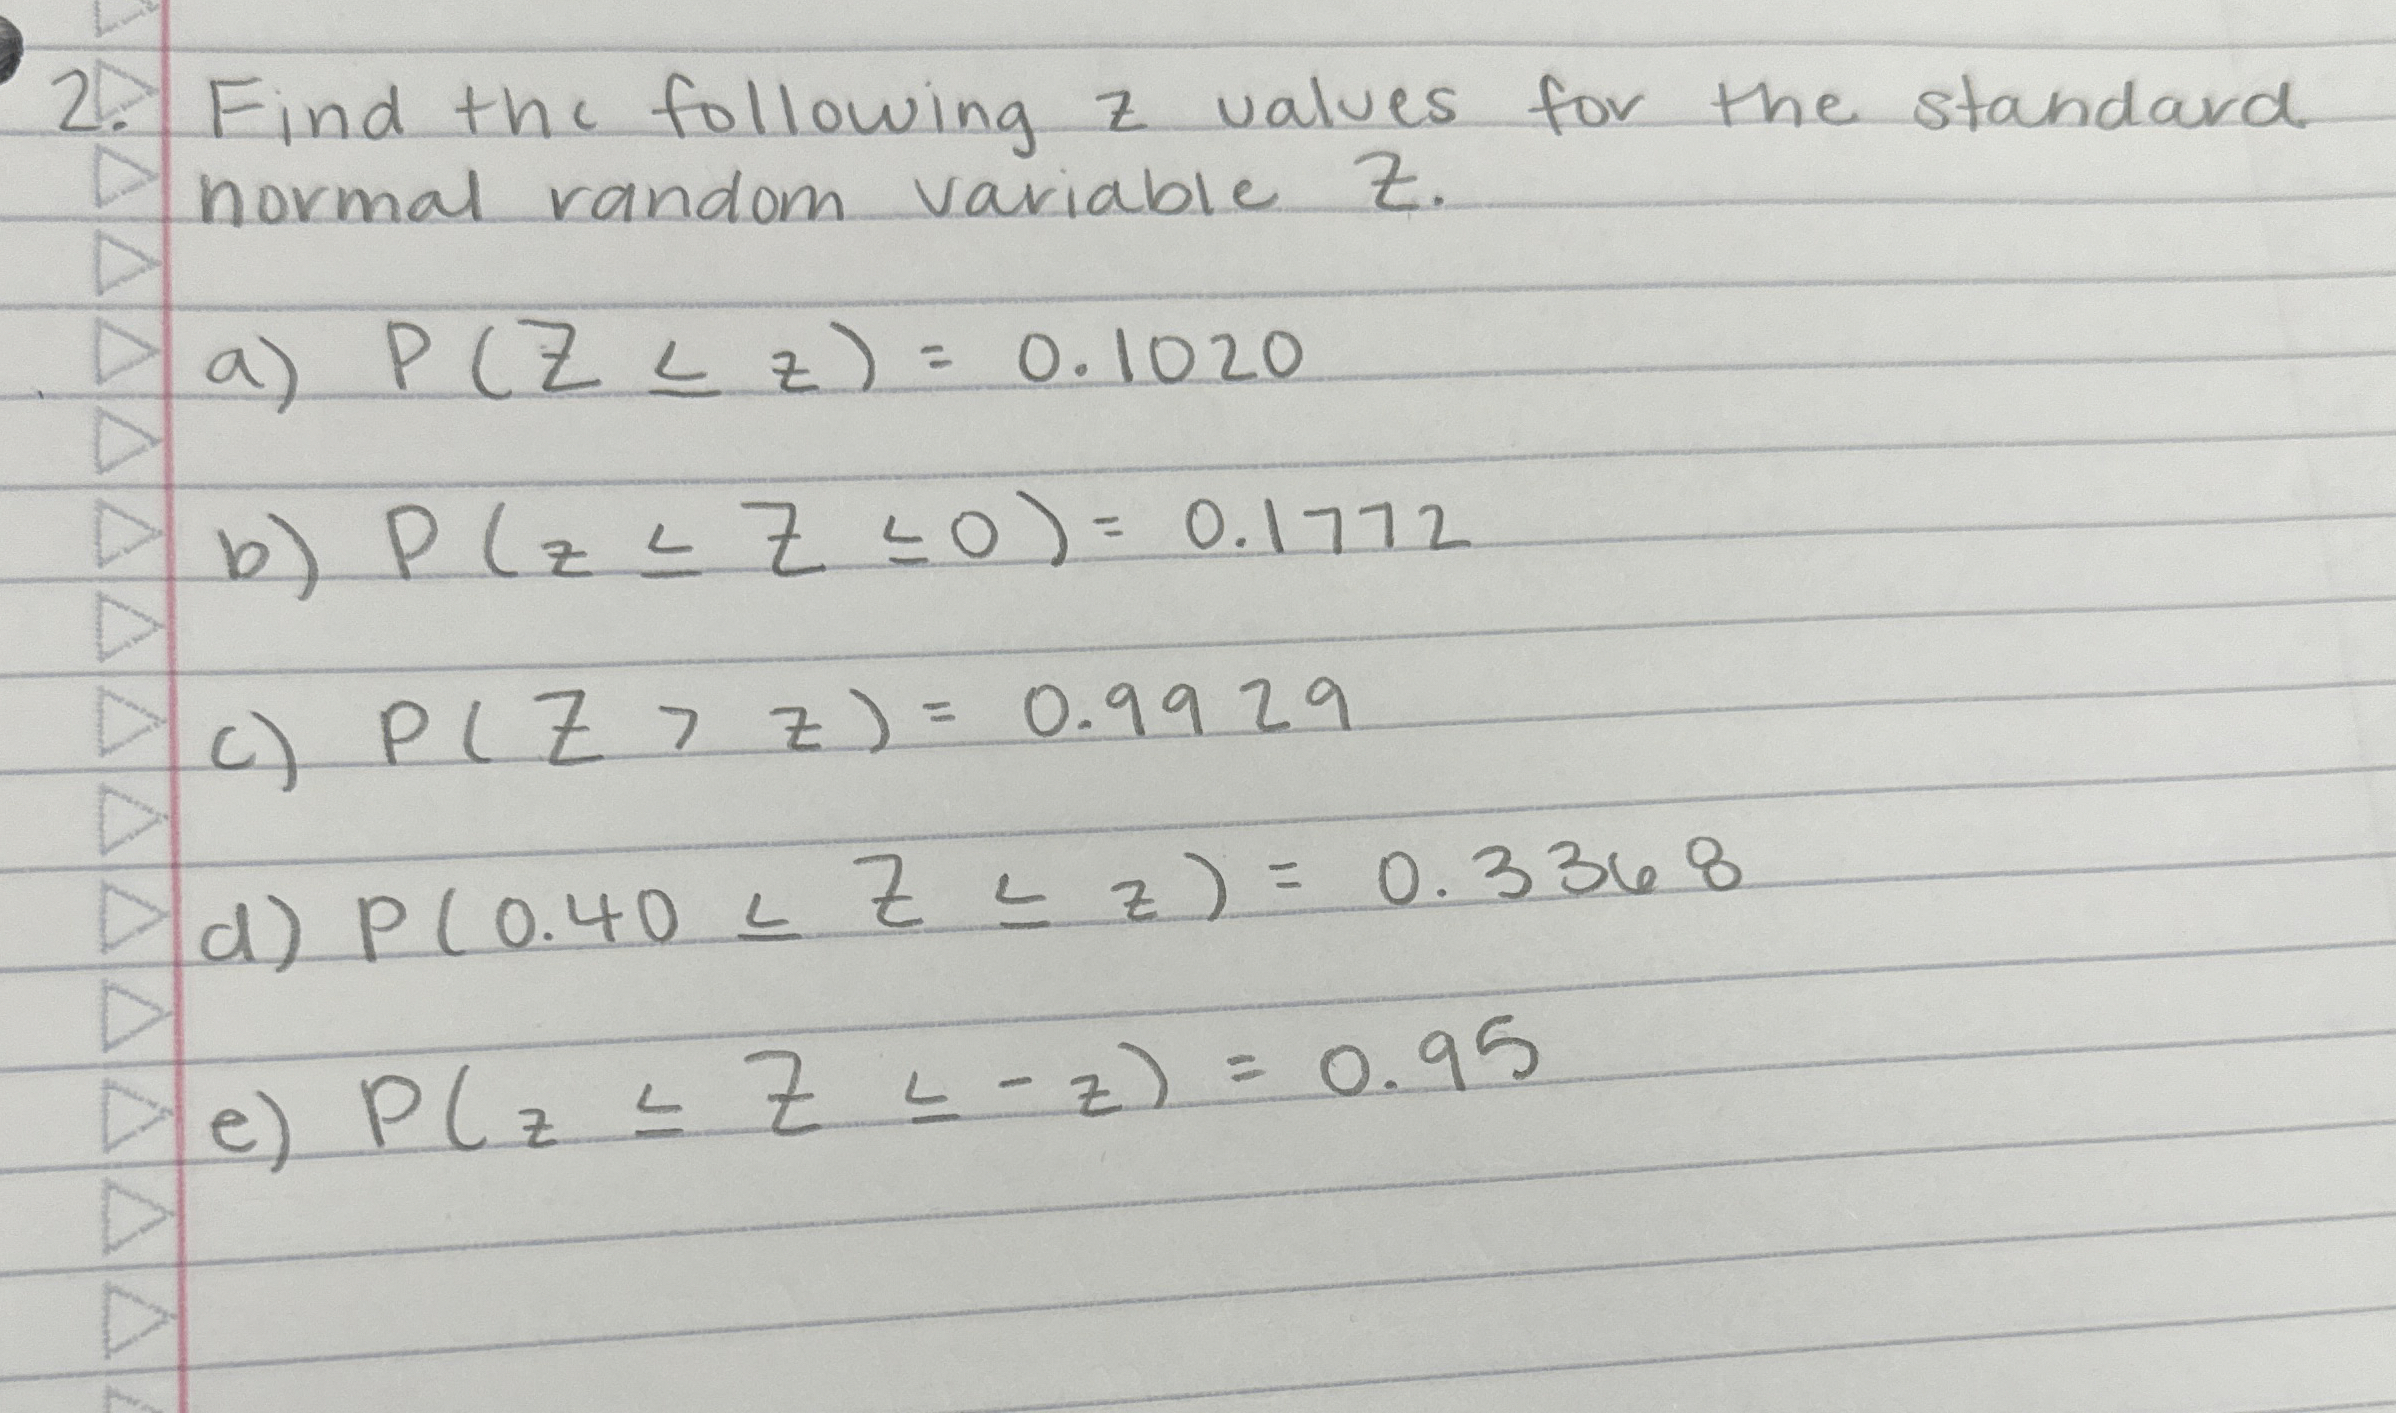 2. Find the following z values for the standard
normal random variable Z.
a) P(Z ≤ z) = 0.1020
b) P(z ≤ Z ≤ 0) = 0.1772
c) P(Z > z) = 0.9929
d) P(0.40 ≤ Z ≤ z) = 0.3368
e) P(z ≤ Z ≤ -z) = 0.95